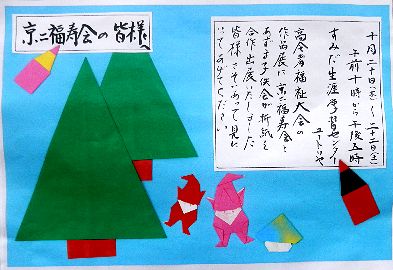 京二福寿会の皆様へ
十月二十日(木)〜二十二日(土)
午前十時から午後五時
すみだ生涯学習センター
ユートリヤ
高令者福祉大会の
作品展に京二福寿会と
あずま子供会が折紙を
合作出展いたしました
皆様さそいあって見に
いってあげてください